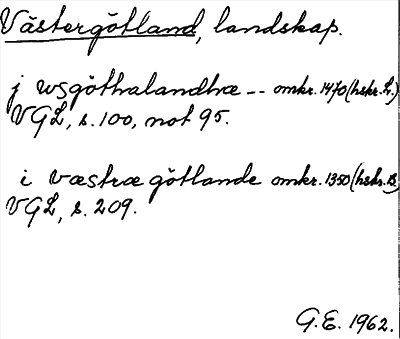 Västergötland, landskap.
j wsgöthalandhæ -- omkr. 1470 (hskr. L.)
VGL, s. 100, not 95.
i væstræ götlande omkr. 1350 (hskr. B)
VGL, s. 209.
G.E. 1962.